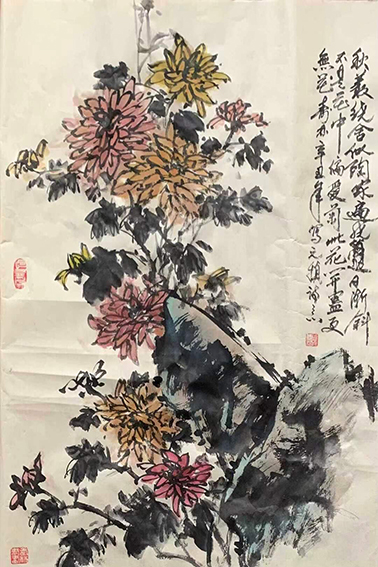 秋叢绕舍似陶家遍绕籬邊日漸斜
不是花中偏愛菊此花開盡更
無花辛丑年寫元稹詩意